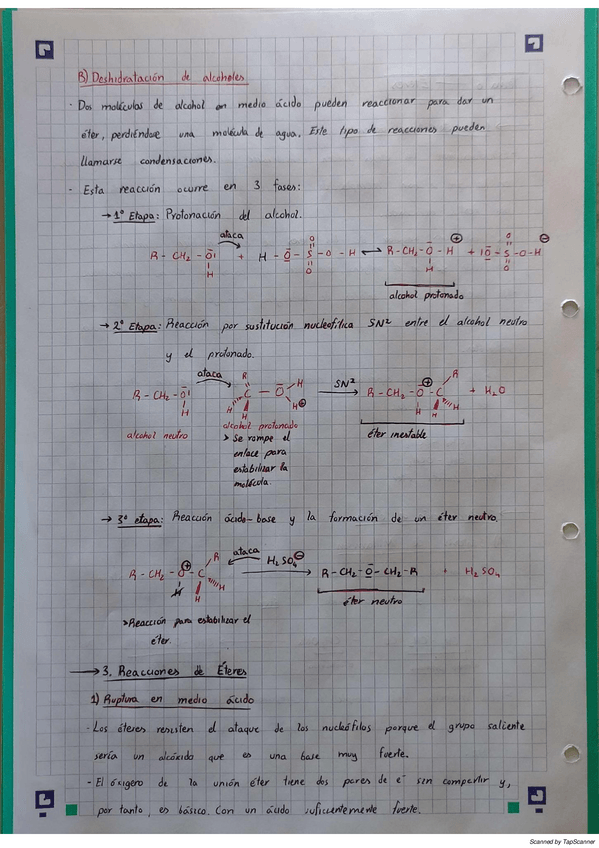 B) Deshidratación de alcoholes
· Dos moléculas de alcohol en medio ácido pueden reaccionar para dar un
éter, perdiéndose una molécula de agua. Este tipo de reacciones pueden
llamarse condensaciones.
- Esta reacción ocurre en 3 fases:
→ 1º Etapa: Protonación del alcohol.
ataca
R - CH₂ - O - H + H - O - S - O - H ↔ R - CH₂ - O - H ⊕ + O - S - O - H ⊖
alcohol protonado
→ 2º Etapa: Reacción por sustitución nucleofílica SN² entre el alcohol neutro
y el protonado.
ataca
R - CH₂ - O - H R C - O H H ⊕ H H SN² → R - CH₂ - O ⊕ - C R H H H + H₂O
alcohol neutro alcohol protonado éter inestable
> Se rompe el
enlace para
estabilizar la
molécula.
→ 3º etapa: Reacción ácido-base y la formación de un éter neutro.
R - CH₂ - O ⊕ - C R H H H ataca H₂SO₄ ⊖ → R - CH₂ - O - CH₂ - R + H₂SO₄
éter neutro
> Reacción para estabilizar el
éter.
→ 3. Reacciones de Éteres
1) Ruptura en medio ácido
- Los éteres resisten el ataque de los nucleófilos porque el grupo saliente
sería un alcóxido que es una base muy fuerte.
- El óxigero de la unión éter tiene dos pares de e⁻ sin compartir y,
por tanto, es básico. Con un ácido suficientemente fuerte.
Scanned by TapScanner